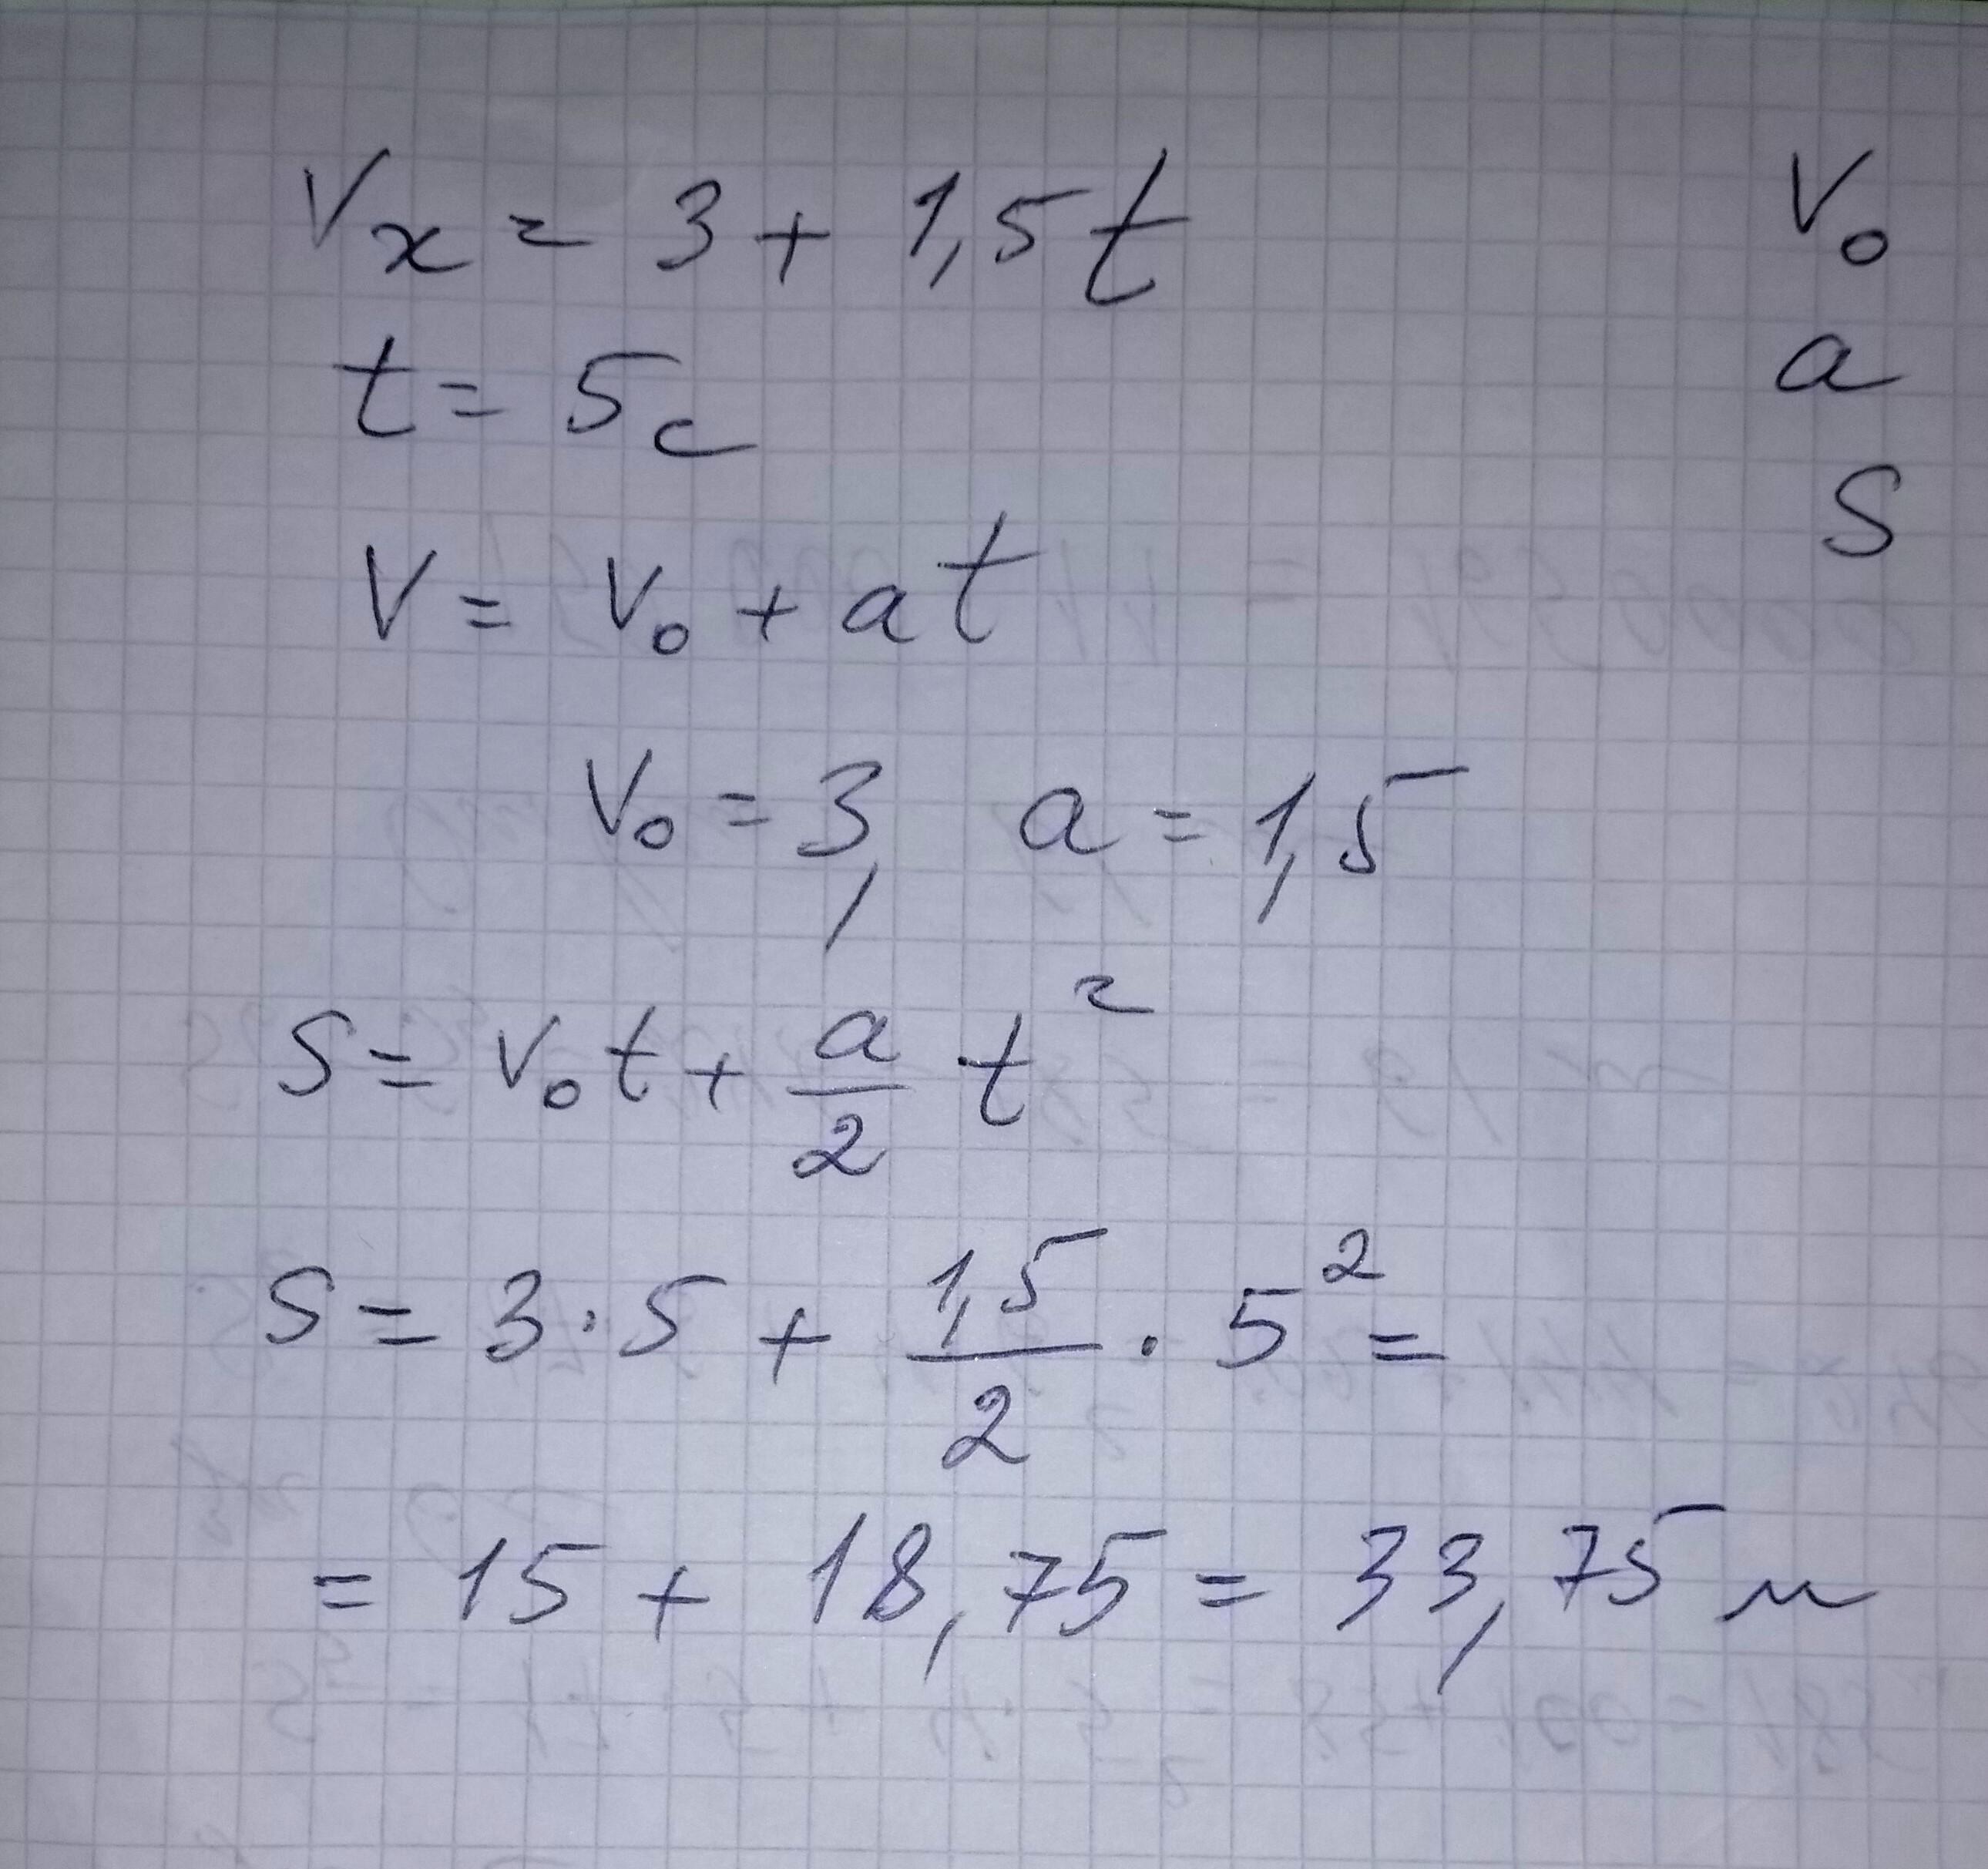 Vx = 3 + 1,5t
V0
t = 5с
a
S
V = V0 + at
V0 = 3, a = 1,5
S = V0t + a/2 t²
S = 3·5 + 1,5/2 · 5² =
= 15 + 18,75 = 33,75 м